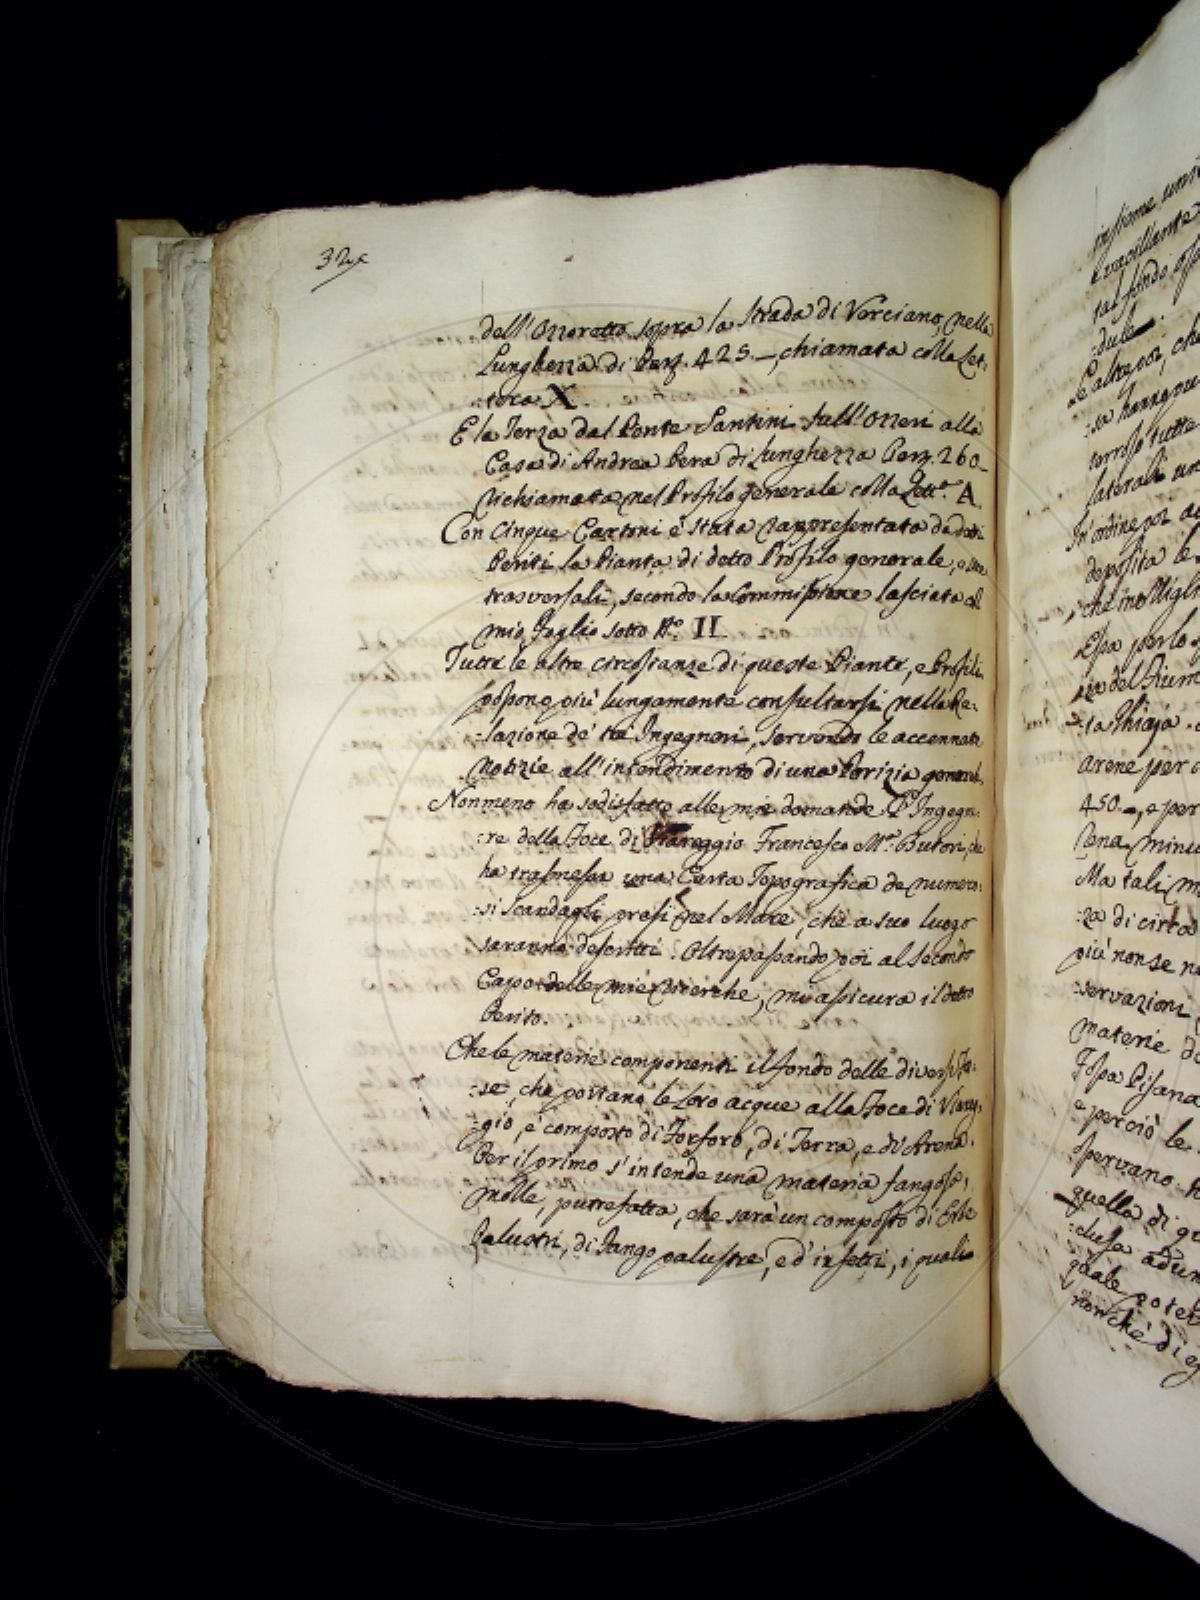 32
dell'Ozzoretto sopra la Strada di Verciano, nella
Lunghezza di Perz. 425.—, chiamata colla Let:
:tera X.
E la Terza dal Ponte Santini sull'Ozzeri alla
Casa di Andrea Pera di Lunghezza Perz. 260_
richiamata nel Profilo generale colla Lett.ª A
Con Cinque Cartoni è stata rappresentata da detti
Periti la Pianta di detto Profilo generale, e
trasversali, secondo la Commissione lasciata al
mio Foglio sotto N.º II.
Tutte le altre circostanze di queste Piante, e Profili
possono più lungamente consultarsi nella Re:
:lazione de' tre Ingegneri, servendo le accennate
notizie all'intendimento di una Perizia general.
Nonmeno ha sodisfatto alle mie domande Ingegn:
:re della Foce di Viareggio Francesco M.ª Butori, che
ha trasmessa una Carta Topografica de numero:
:si Scandagli presi nel Mare, che a suo luogo
saranno descritti. Oltrepassando poi al Secondo
Capo delle mie ricerche, mi assicura il detto
Perito.
Che le materie componenti il fondo delle diverse Fos:
:se, che portano le Loro acque alla Foce di Viareg:
:gio, è composto di Forforo, di Terra, e di Arena.
Per il primo s'intende una materia fangosa,
molle, putrefatta, che sarà un composto di Erbe
Palustri, di Fango palustre, e d'insetti, i quali
insieme
vacillante
tal fondo
:dule.
Le altre poi, che
:sa hanno
terroso tutte
laterali un
In ordine poi
deposita le
che
Essa per lo
del Fium
:ta Ghiaja.
arene per
450.—, e per
lena minu
Ma tali m
:za di circa
più non se n
:servazioni
materie de
Fossa Pisana
e perciò le
quella di qu
:clusa adun
quale potet
nonchè di